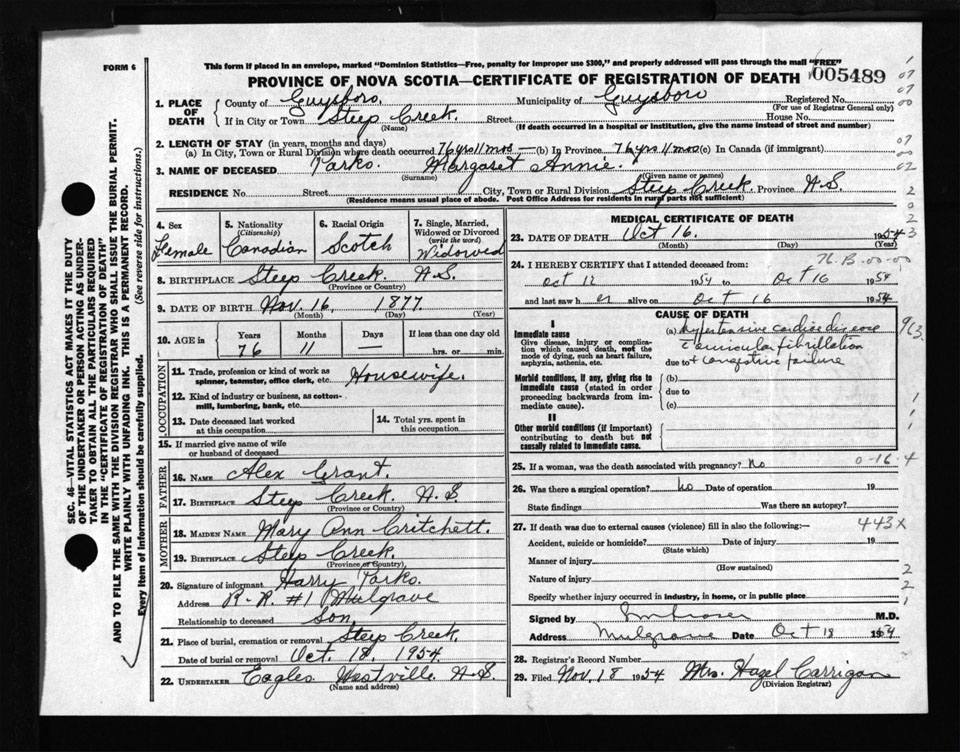 FORM 6
This form if placed in an envelope, marked "Dominion Statistics—Free, penalty for improper use $300," and properly addressed will pass through the mail "FREE"
PROVINCE OF NOVA SCOTIA—CERTIFICATE OF REGISTRATION OF DEATH
005489
SEC. 46—VITAL STATISTICS ACT MAKES IT THE DUTY
OF THE UNDERTAKER OR PERSON ACTING AS UNDER-
TAKER TO OBTAIN ALL THE PARTICULARS REQUIRED
IN THE "CERTIFICATE OF REGISTRATION OF DEATH"
AND TO FILE THE SAME WITH THE DIVISION REGISTRAR WHO SHALL ISSUE THE BURIAL PERMIT.
WRITE PLAINLY WITH UNFADING INK. THIS IS A PERMANENT RECORD.
Every item of information should be carefully supplied. (See reverse side for instructions.)
1. PLACE OF DEATH
County of Guysboro, Municipality of Guysboro Registered No.
(For use of Registrar General only)
If in City or Town Steep Creek. Street House No.
(Name) (If death occurred in a hospital or institution, give the name instead of street and number)
2. LENGTH OF STAY (in years, months and days)
(a) In City, Town or Rural Division where death occurred 76 yrs 11 mos — (b) In Province 76 yrs 11 mos (c) In Canada (if immigrant)
3. NAME OF DECEASED Margaret Annie.
(Surname) (Given name or names)
RESIDENCE No. Street City, Town or Rural Division Steep Creek Province N.S.
(Residence means usual place of abode. Post Office Address for residents in rural parts not sufficient)
4. Sex
Female
5. Nationality
(Citizenship)
Canadian
6. Racial Origin
Scotch
7. Single, Married, Widowed or Divorced
(write the word)
Widowed
8. BIRTHPLACE Steep Creek. N.S.
(Province or Country)
9. DATE OF BIRTH Nov. 16, 1877.
(Month) (Day) (Year)
10. AGE in
Years Months Days If less than one day old
76 11 — hrs. or min.
OCCUPATION
11. Trade, profession or kind of work as
spinner, teamster, office clerk, etc. Housewife.
12. Kind of industry or business, as cotton-
mill, lumbering, bank, etc.
13. Date deceased last worked
at this occupation
14. Total yrs. spent in
this occupation
15. If married give name of wife
or husband of deceased
FATHER
16. Name Alex Grant.
17. Birthplace Steep Creek. N.S.
(Province or Country)
MOTHER
18. Maiden Name Mary Ann Critchett.
19. Birthplace Steep Creek.
(Province or Country)
20. Signature of informant Harry
Address R.R. #1 Mulgrave
Relationship to deceased Son.
21. Place of burial, cremation or removal Steep Creek.
Date of burial or removal Oct. 18, 1954.
22. UNDERTAKER Eagles Westville. N.S.
(Name and address)
MEDICAL CERTIFICATE OF DEATH
23. DATE OF DEATH Oct 16. 1954
(Month) (Day) (Year)
24. I HEREBY CERTIFY that I attended deceased from:
Oct 12 1954 to Oct 16 1954
and last saw her alive on Oct 16 1954
CAUSE OF DEATH
I
Immediate cause
Give disease, injury or complica-
tion which caused death, not the
mode of dying, such as heart failure,
asphyxia, asthenia, etc.
(a) Hypertensive cardiac disease
auricular fibrillation
due to + congestive failure
Morbid conditions, if any, giving rise to
immediate cause (stated in order
proceeding backwards from im-
mediate cause).
(b)
due to
(c)
II
Other morbid conditions (if important)
contributing to death but not
causally related to immediate cause.
25. If a woman, was the death associated with pregnancy? No
26. Was there a surgical operation? No Date of operation 19
State findings Was there an autopsy?
27. If death was due to external causes (violence) fill in also the following:—
443X
Accident, suicide or homicide? Date of injury 19
(State which)
Manner of injury
(How sustained)
Nature of injury
Specify whether injury occurred in industry, in home, or in public place
Signed by M.D.
Address Mulgrave Date Oct 18 1954
28. Registrar's Record Number
29. Filed Nov. 18 1954 Mrs. Hazel Carrigan
(Division Registrar)